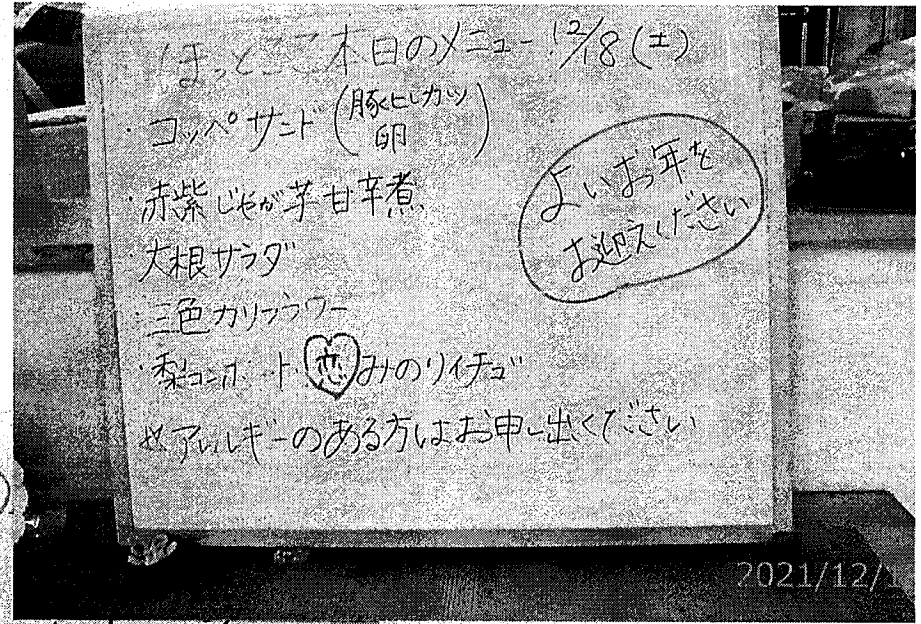 ほっとここ本日のメニュー 12/18(土)
・コッペサンド(豚ヒレカツ
卵)
・赤紫じゃが芋甘辛煮
・大根サラダ
・三色カリフラワー
・梨コンポート 恋みのりイチゴ
※アレルギーのある方はお申し出ください
よいお年を
お迎えください
2021/12/1